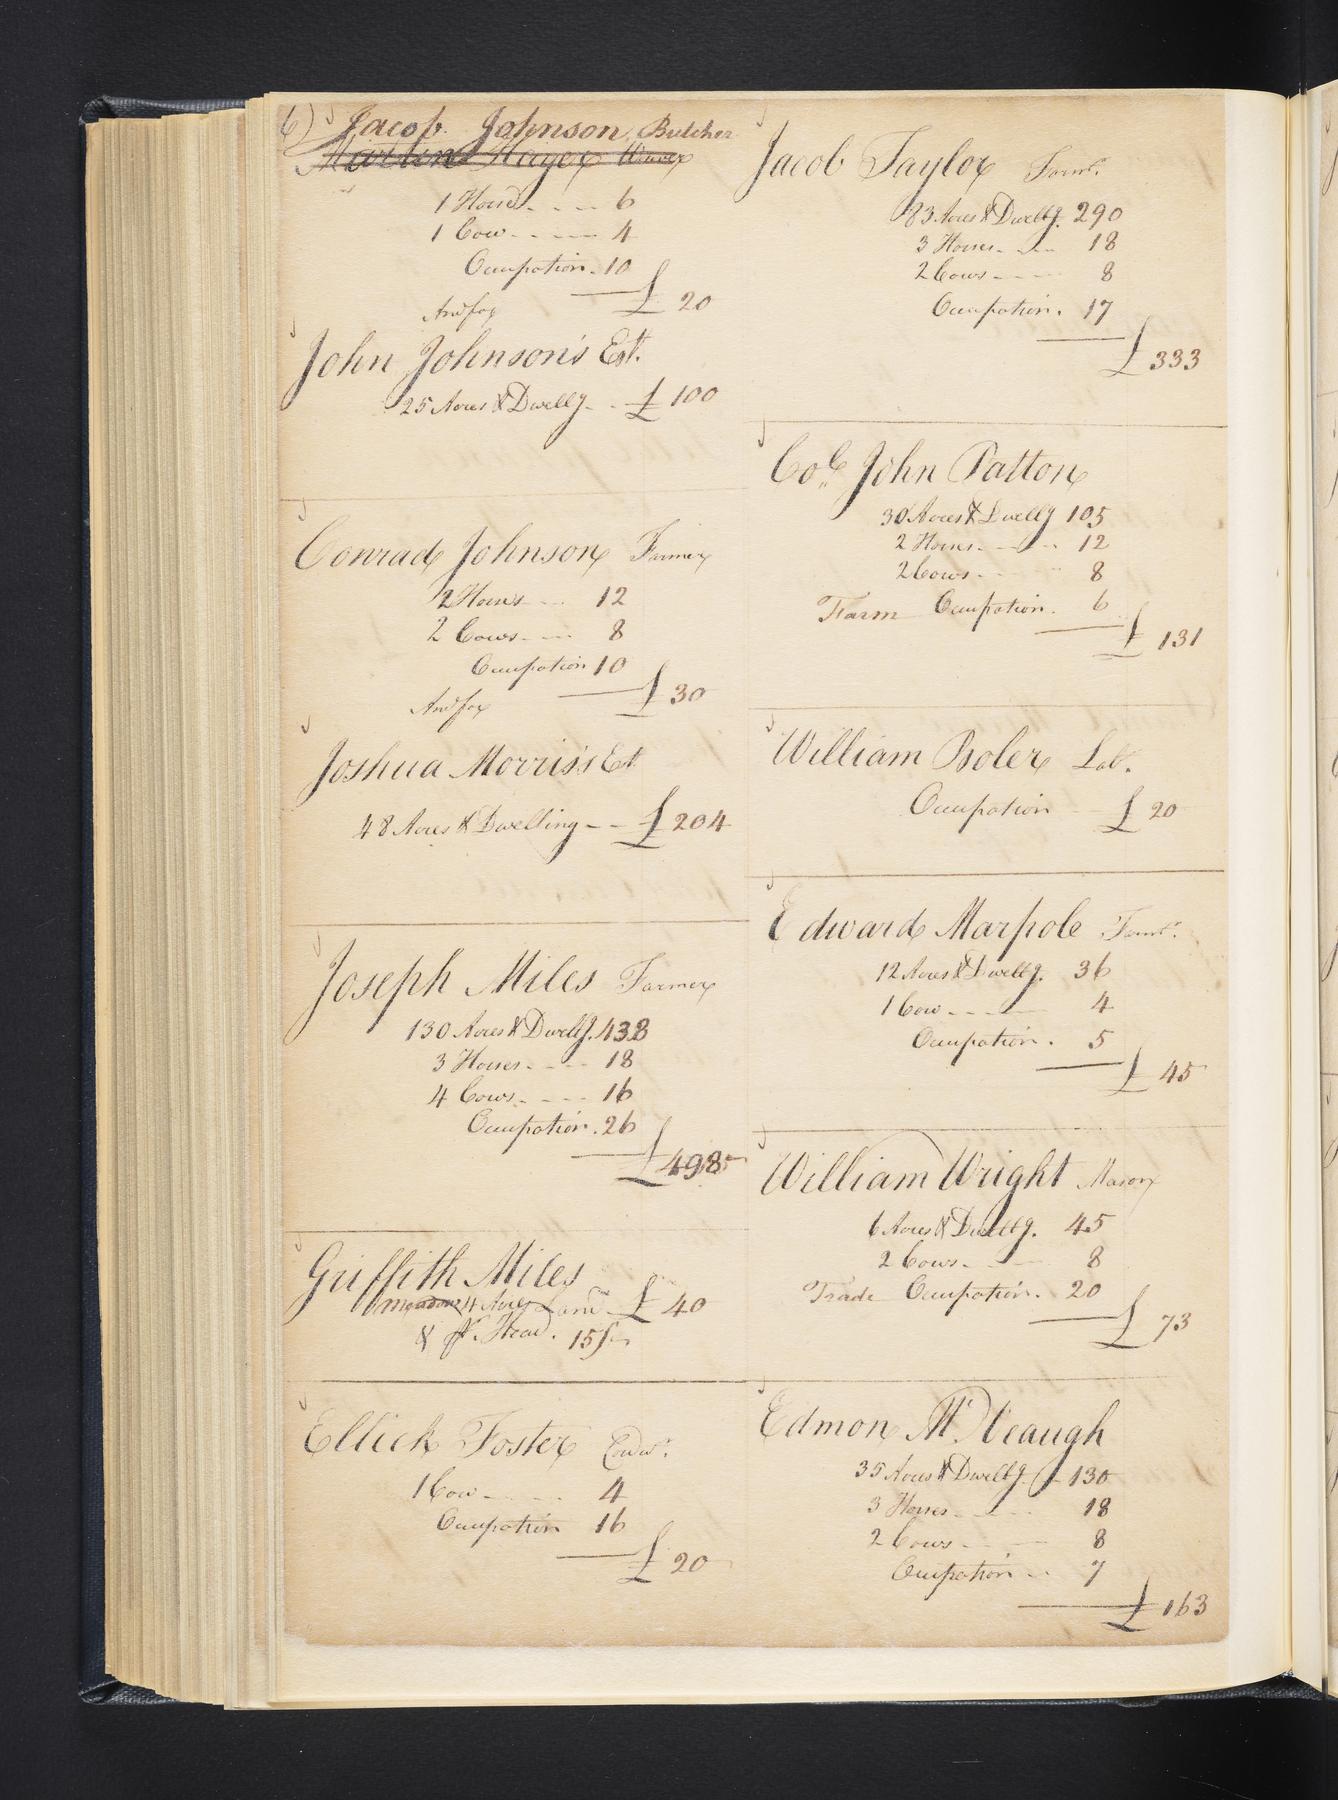 6) Jacob Johnson Butcher
Martin Hayer Weaver
1 Horse 6
1 Cow 4
Occupation 10
£ 20
And for
John Johnson's Est.
25 Acres & Dwellg £ 100
Conrad Johnson Farmer
2 Horses 12
2 Cows 8
Occupation 10
£ 30
And for
Joshua Morris's Est
48 Acres & Dwelling £ 204
Joseph Miles Farmer
130 Acres & Dwellg. 438
3 Horses 18
4 Cows 16
Occupation 26
£ 498
Griffith Miles
meadow 4 Acres Land £ 40
& pr. Head. 15/
Ellick Foster
1 Cow 4
Occupation 16
£ 20
Jacob Taylor Farmr.
83 Acres & Dwellg. 290
3 Horses 18
2 Cows 8
Occupation 17
£ 333
Col. John Patton
30 Acres & Dwellg 105
2 Horses 12
2 Cows 8
Farm Occupation 6
£ 131
William Boler Labr.
Occupation £ 20
Edward Marpole Farmr.
12 Acres & Dwellg. 36
1 Cow 4
Occupation 5
£ 45
William Wright Mason
6 Acres & Dwellg. 45
2 Cows 8
Trade Occupation 20
£ 73
Edmon Mc.Veaugh
35 Acres & Dwellg 130
3 Horses 18
2 Cows 8
Occupation 7
£ 163